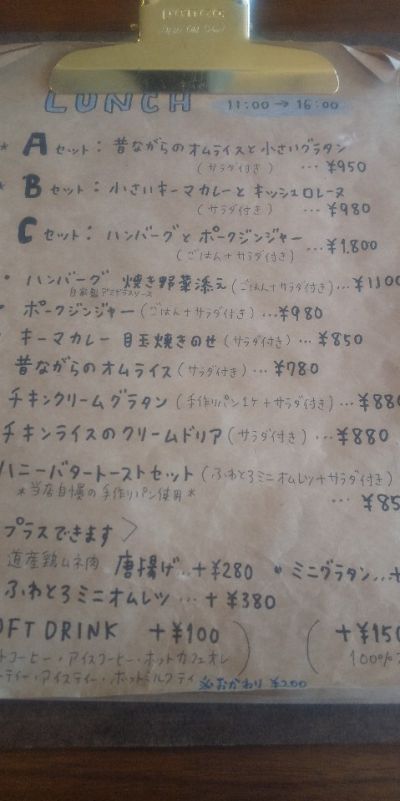 LUNCH 11:00→16:00
* Aセット: 昔ながらのオムライスと小さいグラタン
(サラダ付き) … ¥950
* Bセット: 小さいキーマカレーとキッシュロレーヌ
(サラダ付き) … ¥980
Cセット: ハンバーグとポークジンジャー
(ごはん+サラダ付き) … ¥1.800
・ハンバーグ 焼き野菜添え (ごはん+サラダ付き) … ¥1100
自家製デミグラスソース
・ポークジンジャー (ごはん+サラダ付き) … ¥980
・キーマカレー 目玉焼きのせ (サラダ付き) … ¥850
昔ながらのオムライス (サラダ付き) … ¥780
チキンクリームグラタン (手作りパン1ケ+サラダ付き) … ¥880
チキンライスのクリームドリア (サラダ付き) … ¥880
ハニーバタートーストセット (ふわとろミニオムレツ+サラダ付き)
*当店自慢の手作りパン使用*
… ¥85
プラスできます〉
道産鶏ムネ肉 唐揚げ… +¥280 ・ミニグラタン… +
ふわとろミニオムレツ … +¥380
OFT DRINK +¥100 ) ( +¥150
トコーヒー・アイスコーヒー・ホットカフェオレ 100%
ーティー・アイスティー・ホットミルクティ ※おかわり ¥200